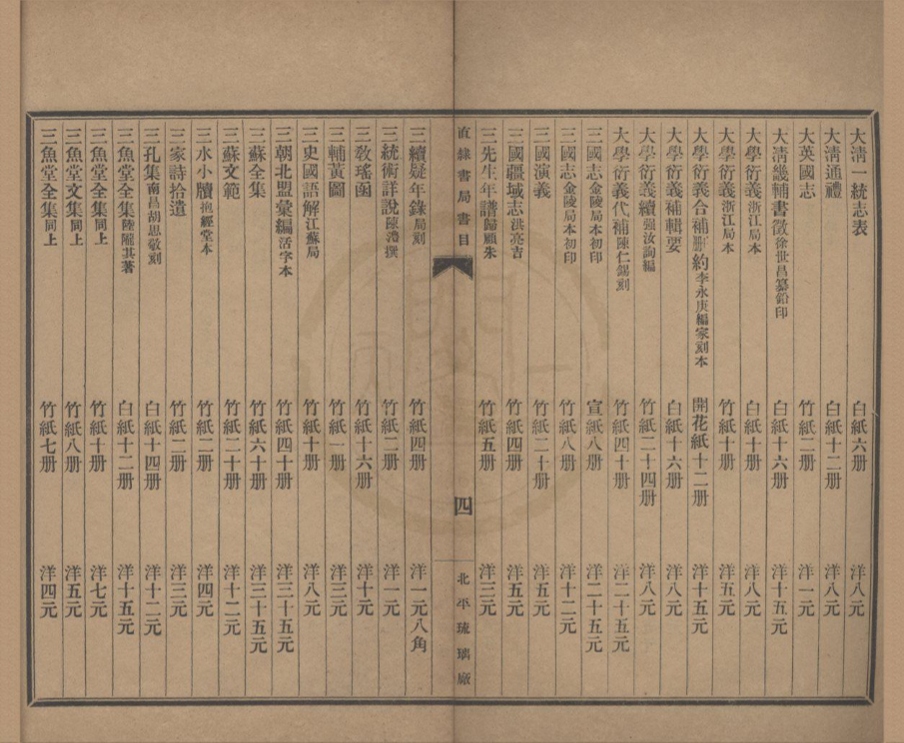 大淸一統志表 白紙六册 洋八元
大淸通禮 白紙十二册 洋八元
大英國志 竹紙二册 洋一元
大淸畿輔書徵徐世昌纂鉛印 白紙十六册 洋十五元
大學衍義浙江局本 白紙十册 洋八元
大學衍義浙江局本 竹紙十册 洋五元
大學衍義合補刪約李永庚編家刻本 開花紙十二册 洋十五元
大學衍義補輯要 白紙十六册 洋八元
大學衍義續强汝詢編 竹紙二十四册 洋八元
大學衍義代補陳仁錫刻 竹紙四十册 洋二十五元
三國志金陵局本初印 宣紙八册 洋二十五元
三國志金陵局本初印 竹紙八册 洋十二元
三國演義 竹紙二十册 洋五元
三國疆域志洪亮吉 竹紙四册 洋五元
三先生年譜歸顧朱 竹紙五册 洋三元
直隸書局書目 四 北平琉璃廠
三續疑年錄局刻 竹紙四册 洋一元八角
三統術詳說陳澧撰 竹紙二册 洋一元
三敎瑤函 竹紙十六册 洋十元
三輔黃圖 竹紙一册 洋三元
三史國語解江蘇局 竹紙十册 洋八元
三朝北盟彙編活字本 竹紙四十册 洋三十五元
三蘇全集 竹紙六十册 洋三十五元
三蘇文範 竹紙二十册 洋十二元
三水小牘抱經堂本 竹紙二册 洋四元
三家詩拾遺 竹紙二册 洋三元
三孔集南昌胡思敬刻 白紙十四册 洋十二元
三魚堂全集陸隴其著 白紙十二册 洋十五元
三魚堂全集同上 竹紙十册 洋七元
三魚堂文集同上 竹紙八册 洋五元
三魚堂全集同上 竹紙七册 洋四元